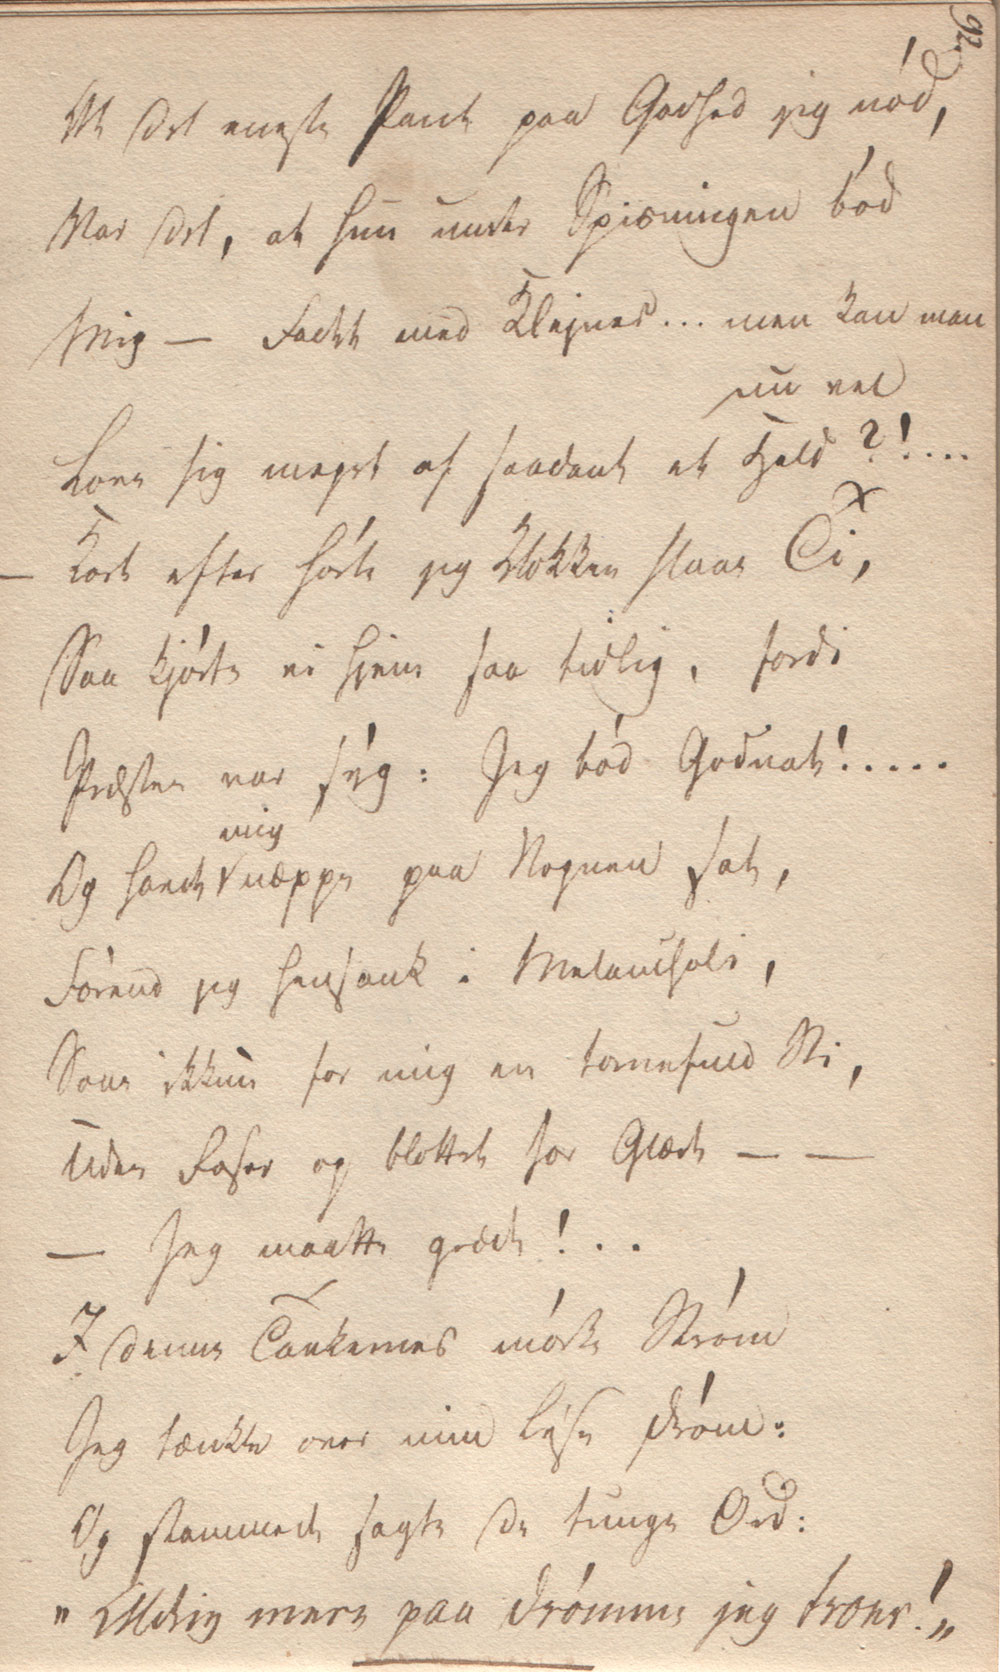 92.
At det eneste Pant paa Godhed jeg nød,
Var det, at hun under Spisningen bød
Mig — Fadet med Klejner... men kan man
nu vel
Rose sig meget af saadant et Held?!....
— Kort efter hørte jeg Klokken slaae Ti,
Saa kjørte vi hjem saa tidlig, fordi
Præsten var syg: Jeg bød Godnat!.....
Og havde mig næppe paa Vognen sat,
Førend jeg hensank i Melancholi,
Som ikkun for mig en tornefuld Sti,
Uden Roser og blottet for Glæde — —
— Jeg maatte græde!...
I denne Tankernes mørke Strøm
Jeg tænkte over min lyse Drøm:
Og stammede sagte de tunge Ord:
"Aldrig mere paa Drømme jeg troer!"